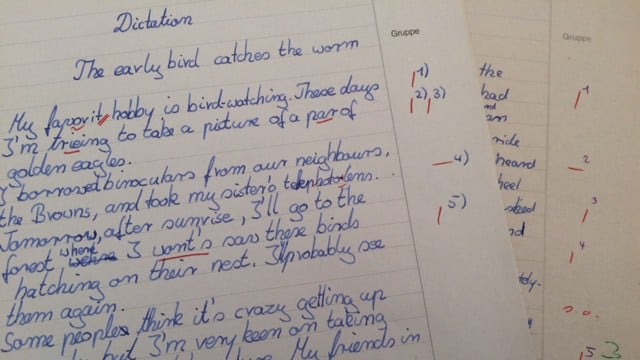 Dictation
The early bird catches the worm
My favorit hobby is bird-watching. These days
I'm trieing to take a picture of a par of
golden eagles.
I borrowed binoculars from our neighbours,
the Browns, and took my sister's telephotolens.
Tomorrow, after sunrise, I'll go to the
forest where I want's saw these birds
hatching on their nest. I probably see
them again.
Some peoples think it's crazy getting up
but I'm very keen on taking
My friends in
Gruppe
1)
2) 3)
4)
5)
Gruppe
the
had
ride
heard
heel
1
2
3
4
s.a.
5 3